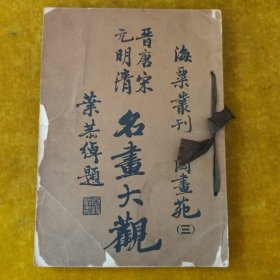 海粟叢刊
國畫苑(三)
晋唐宋
元明清
名畫大觀
葉恭綽題